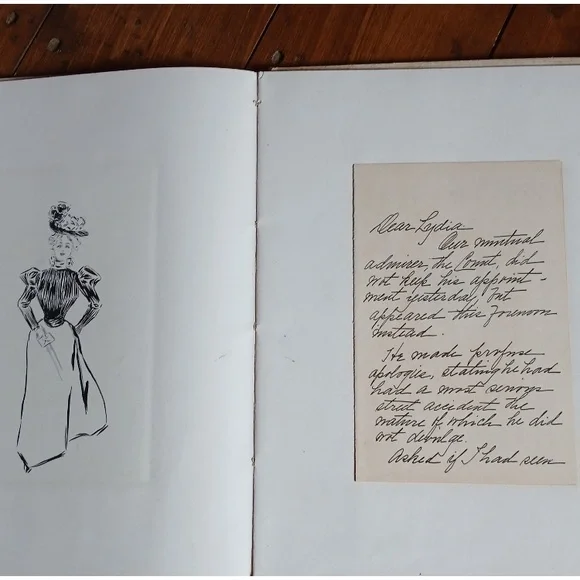 Dear Lydia
Our mutual
admirer, the Count, did
not keep his appoint-
ment yesterday, but
appeared this forenoon
instead.
He made profuse
apologies, stating he had
had a most serious
street accident the
nature of which he did
not divulge.
Asked if I had seen